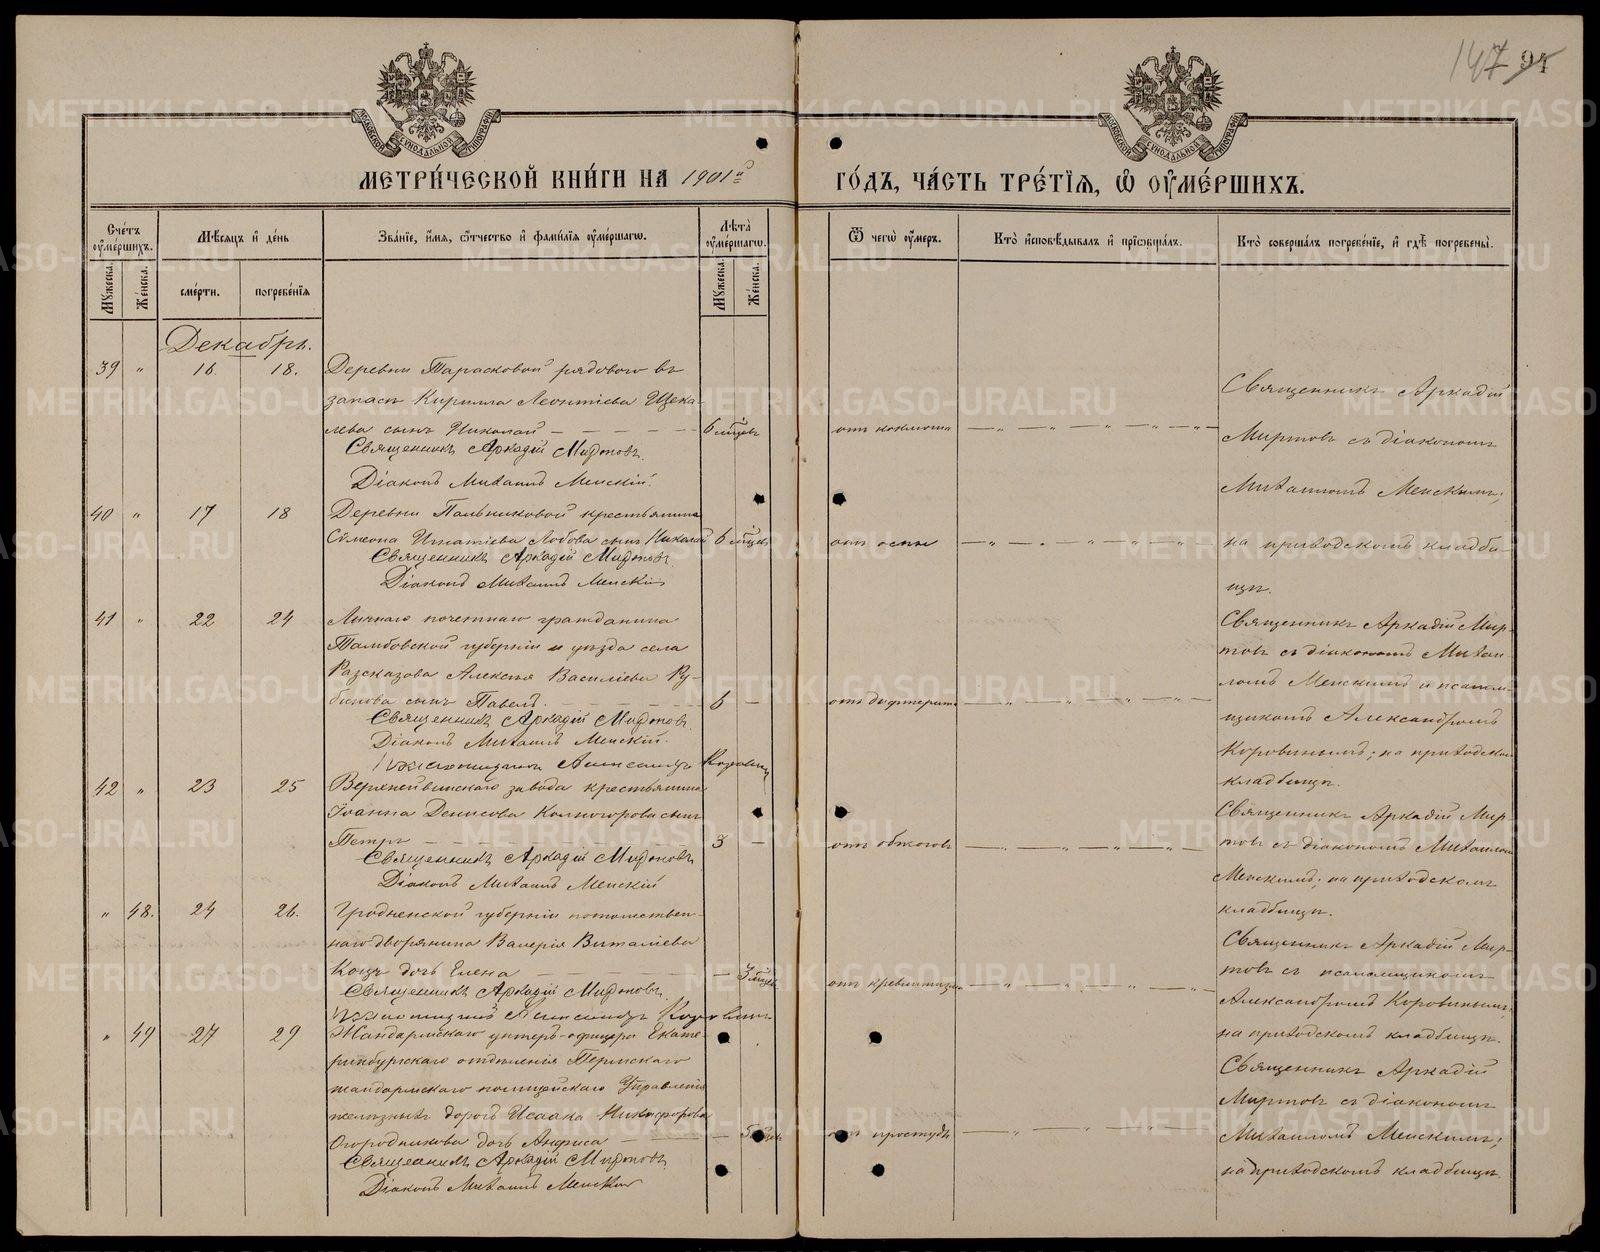 147 94
МОСКОВСКОЙ СѴНОДАЛЬНОЙ ТИПОГРАФІИ
МОСКОВСКОЙ СѴНОДАЛЬНОЙ ТИПОГРАФІИ
МЕТРИ́ЧЕСКОЙ КНИ́ГИ НА 1901й
ГО́ДЪ, ЧА́СТЬ ТРЕ́ТІѦ, Ѡ҆ ОУ҆МЕ́РШИХЪ.
Сче́тъ оу҆ме́ршихъ.
Мꙋжеска.
Же́нска.
Мѣ́сяцъ и҆ де́нь
сме́рти.
погребе́нїѧ
Зва́нїе, и҆́мѧ, ѻ҆́тчество и҆ фами́лїѧ оу҆ме́ршагѡ.
Лѣ́та оу҆ме́ршагѡ.
Мꙋжеска.
Же́нска.
Ѿ чегѡ̀ оу҆́меръ.
Кто̀ и҆сповѣ́дывалъ и҆ прїѡбща́лъ.
Кто̀ соверша́лъ погребе́нїе, и҆ гдѣ̀ погребены̀.
Декабрь.
39 " 16. 18. Деревни Тарасковой рядового въ
запасѣ Кирилла Леонтіева Щека-
лева сынъ Николай — 6 мѣсцевъ отъ коклюша
Священникъ Аркадій Миртовъ.
Діаконъ Михаилъ Менскій.
Священникъ Аркадій
Миртовъ съ діакономъ
Михаиломъ Менскимъ;
40 " 17 18 Деревни Пальниковой крестьянина
Сѵмеона Игнатіева Лобова сынъ Николай 6 мѣсцевъ отъ оспы
Священникъ Аркадій Миртовъ.
Діаконъ Михаилъ Менскій
на приходскомъ кладби-
щѣ.
41 " 22 24 Личнаго почетнаго гражданина
Тамбовской губерніи и уѣзда села
Разсказова Алексѣя Василіева Ру-
бцова сынъ Павелъ. — 6 — отъ дифтерита
Священникъ Аркадій Миртовъ.
Діаконъ Михаилъ Менскій.
Псаломщикъ Александръ Коровинъ
Священникъ Аркадій Мир-
товъ съ діакономъ Михаи-
ломъ Менскимъ и псалом-
щикомъ Александромъ
Коровинымъ; на приходском
кладбищѣ.
42 " 23 25 Верхнейвинскаго завода крестьянина
Іоанна Денисова Колногорова сынъ
Петръ — 3 — отъ обжоговъ
Священникъ Аркадій Миртовъ,
Діаконъ Михаилъ Менскій
Священникъ Аркадій Мир-
товъ съ діакономъ Михаилом
Менскимъ; на приходскомъ
кладбищѣ.
" 48. 24 26. Гродненской губерніи потомствен-
наго дворянина Валерія Виталіева
Коцъ дочь Елена — 3 мѣсцев.
Священникъ Аркадій Миртовъ.
Псаломщикъ Александръ Коровинъ
Священникъ Аркадій Мир-
товъ съ псаломщикомъ
Александромъ Коровинымъ;
на приходскомъ кладбищѣ.
" 49 27 29 Жандармскаго унтеръ-офицера Екате-
ринбургскаго отдѣленія Пермскаго
жандармскаго полицейскаго Управленія
желѣзныхъ дорогъ Исаака Никифорова
Огородникова дочь Анфиса — отъ простуды
Священникъ Аркадій Миртовъ
Діаконъ Михаилъ Менскій
Священникъ Аркадій
Миртовъ съ діакономъ
Михаиломъ Менскимъ;
на приходскомъ кладбищѣ.